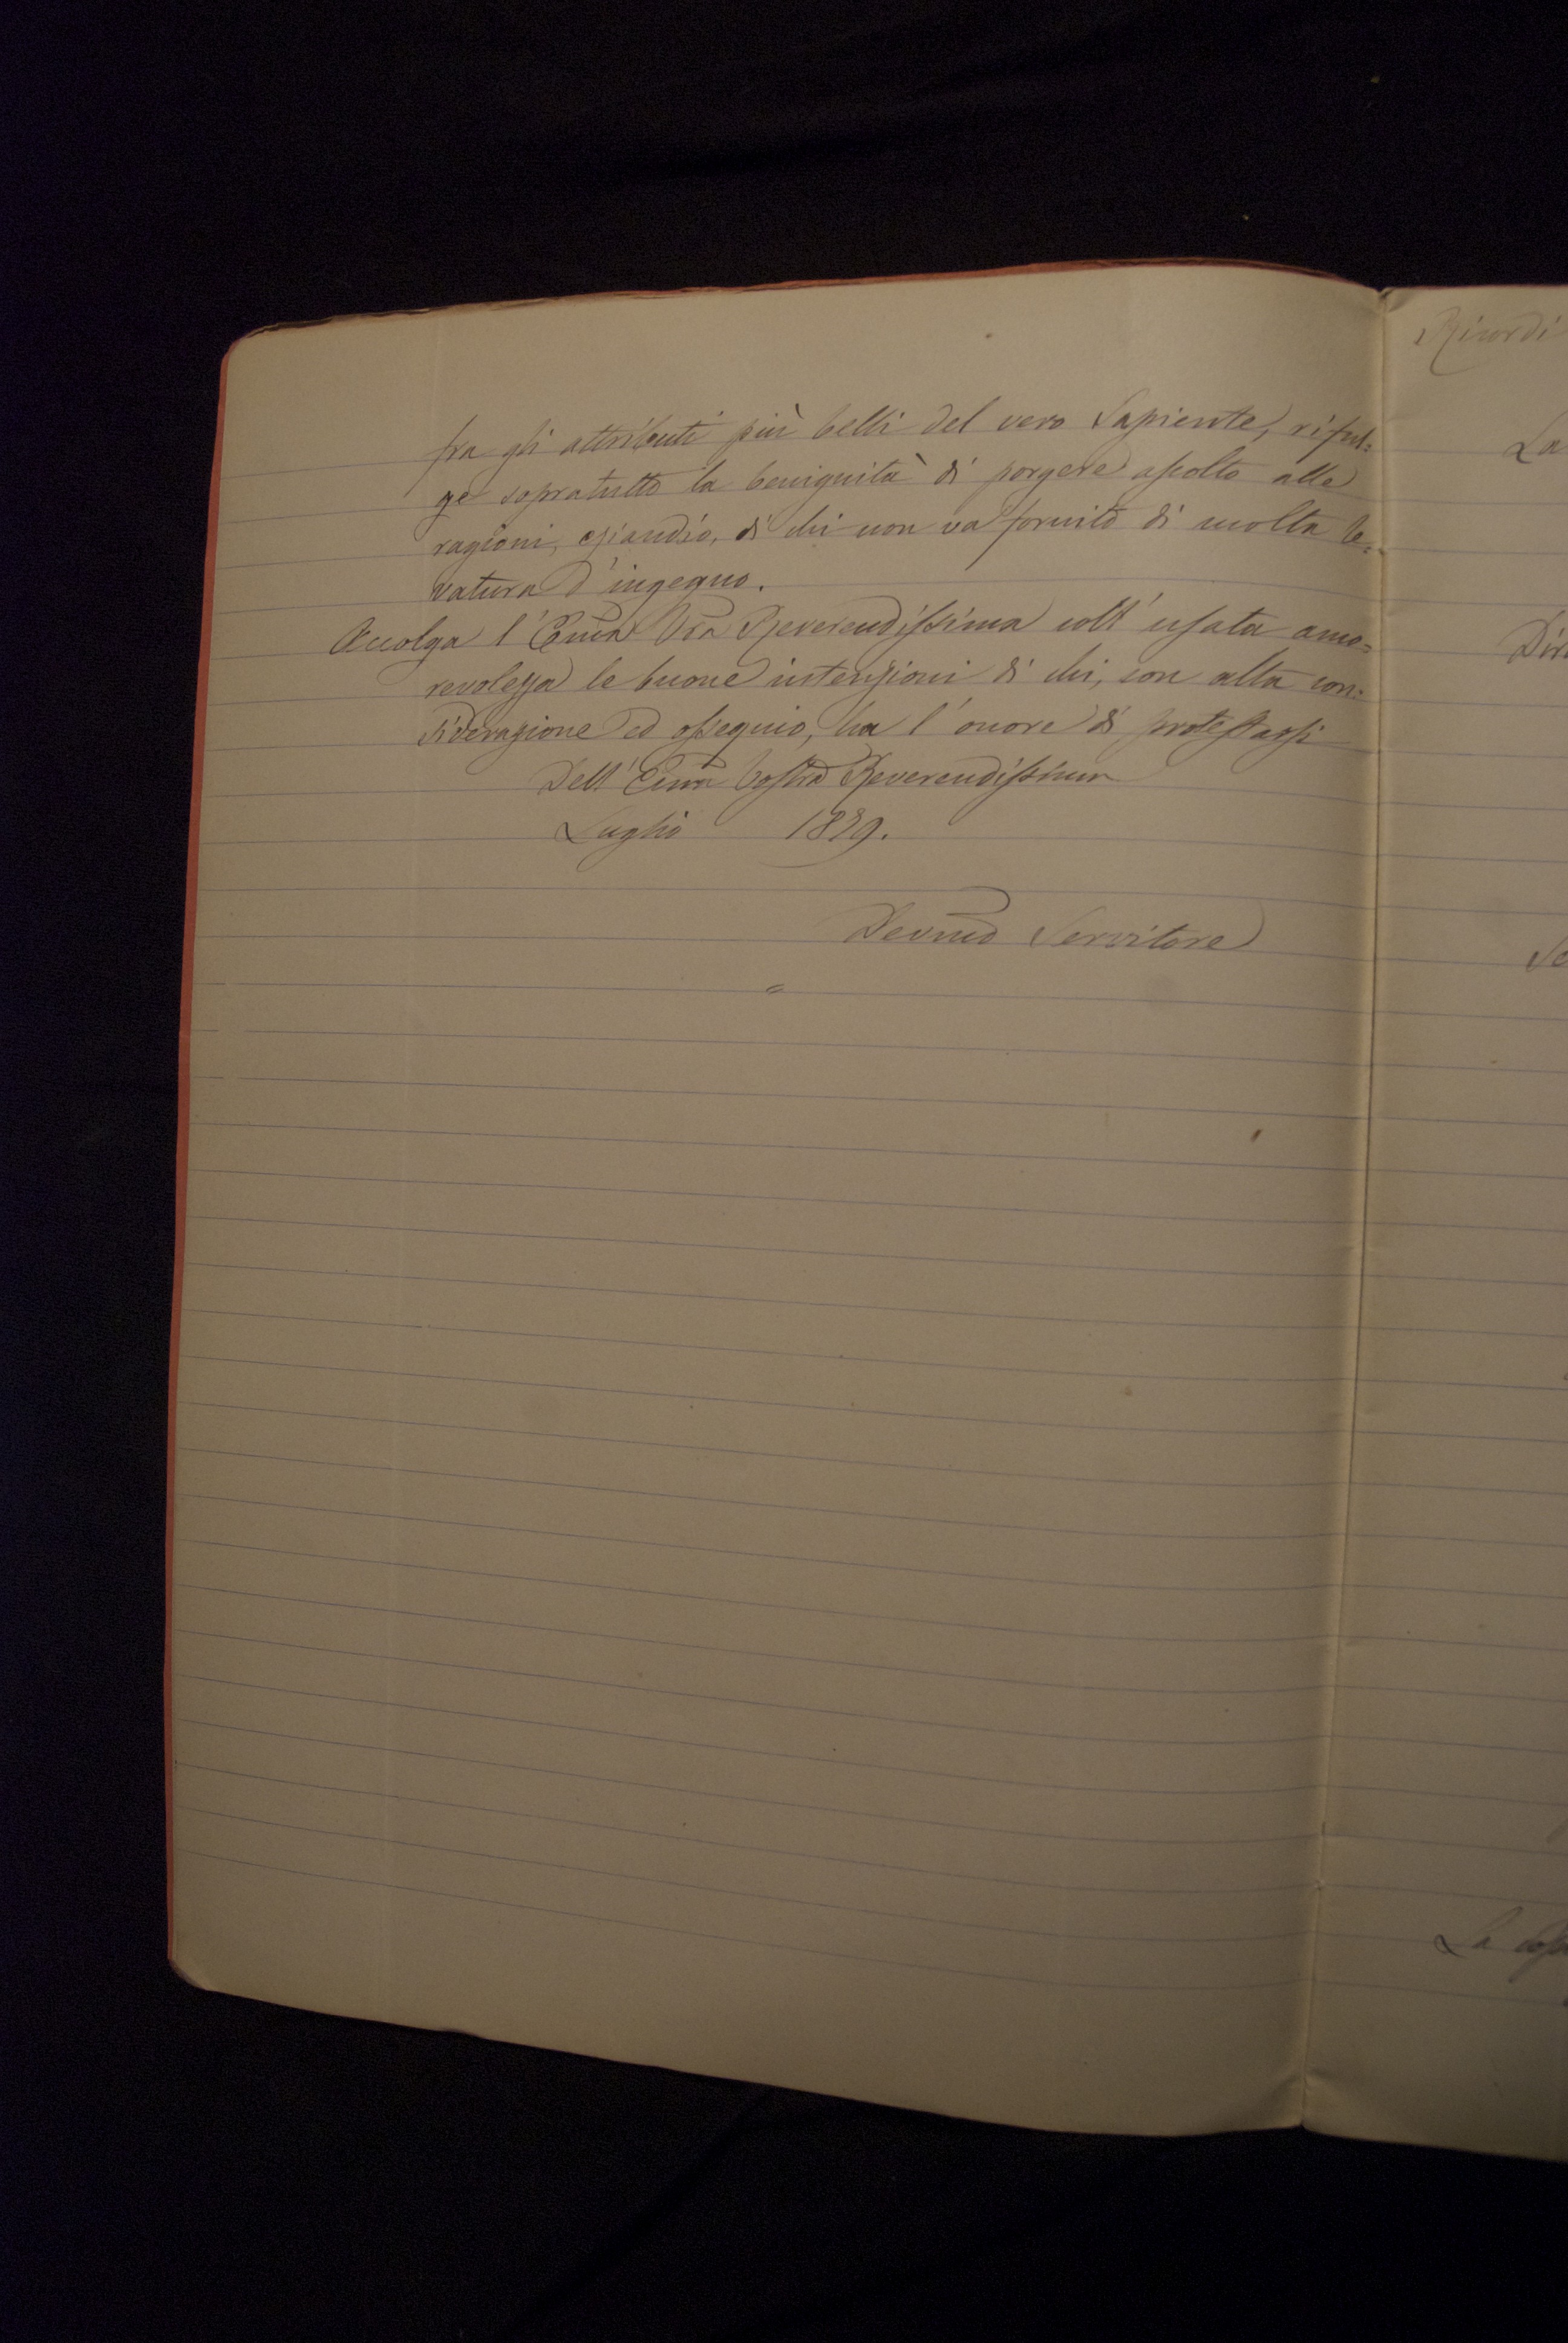 fra gli attributi più belli del vero Sapiente, riful=
ge sopratutto la benignità di porgere ascolto alle
ragioni, eziandio, di chi non va fornito di molta le=
vatura d'ingegno.
Accolga l'Emza Vra Reverendissima coll'usata amo=
revolezza le buone intenzioni di chi, con alta con=
siderazione ed ossequio, ha l'onore di protestarsi
Dell'Emza Vostra Reverendissima
Luglio 1879.
Devmo Servitore
=
Ricordi
La
Se
La